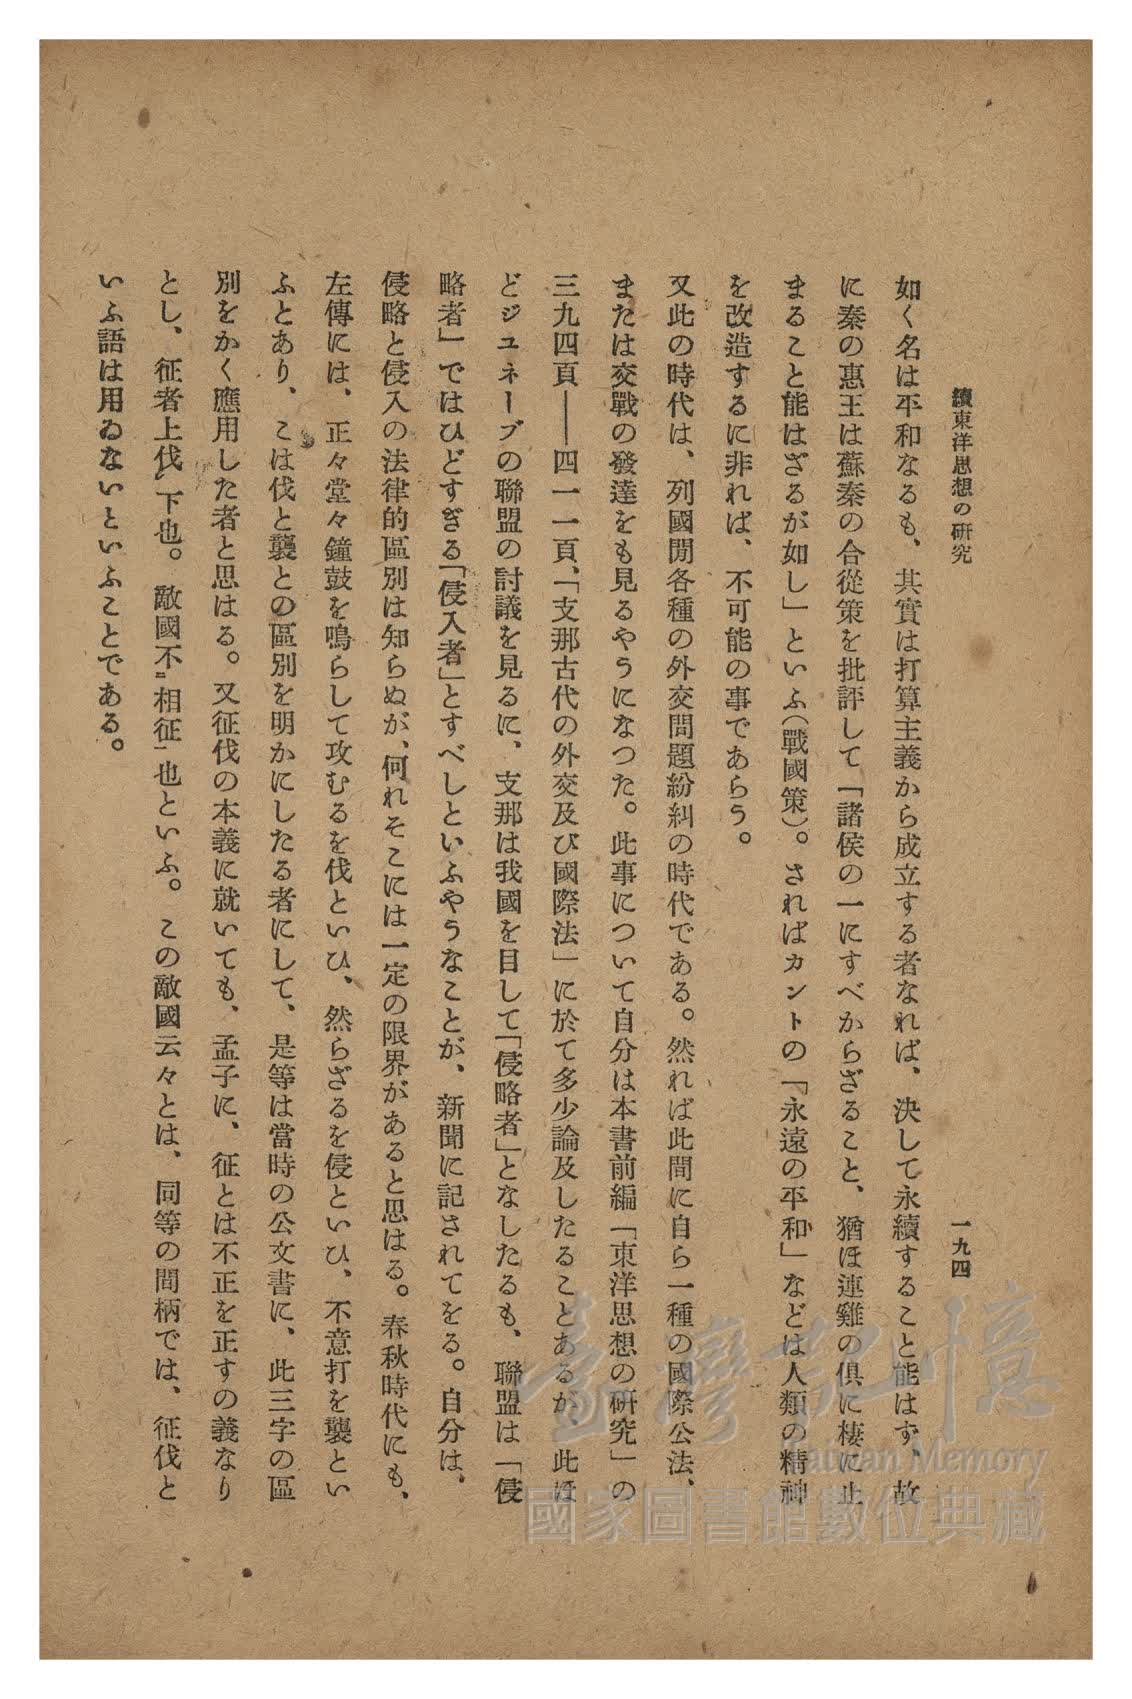 續東洋思想の研究
一九四
如く名は平和なるも、其實は打算主義から成立する者なれば、決して永續すること能はず、故
に秦の惠王は蘇秦の合從策を批評して「諸侯の一にすべからざること、猶ほ連雞の俱に棲に止
まること能はざるが如し」といふ（戰國策）。さればカントの「永遠の平和」などは人類の精神
を改造するに非れば、不可能の事であらう。
又此の時代は、列國間各種の外交問題紛糾の時代である。然れば此間に自ら一種の國際公法、
または交戰の發達をも見るやうになつた。此事について自分は本書前編「東洋思想の研究」の
三九四頁――四一一頁、「支那古代の外交及び國際法」に於て多少論及したることあるが、此ほ
どジユネーブの聯盟の討議を見るに、支那は我國を目して「侵略者」となしたるも、聯盟は「侵
略者」ではひどすぎる「侵入者」とすべしといふやうなことが、新聞に記されてをる。自分は、
侵略と侵入の法律的區別は知らぬが、何れそこには一定の限界があると思はる。春秋時代にも、
左傳には、正々堂々鐘鼓を鳴らして攻むるを伐といひ、然らざるを侵といひ、不意打を襲とい
ふとあり、こは伐と襲との區別を明かにしたる者にして、是等は當時の公文書に、此三字の區
別をかく應用した者と思はる。又征伐の本義に就いても、孟子に、征とは不正を正すの義なり
とし、征者上伐レ下也。敵國不二相征一也といふ。この敵國云々とは、同等の間柄では、征伐と
いふ語は用ゐないといふことである。
臺灣記憶
Taiwan Memory
國家圖書館數位典藏